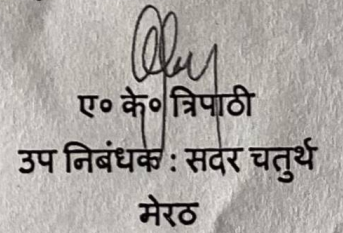 ए० के० त्रिपाठी
उप निबंधक : सदर चतुर्थ
मेरठ